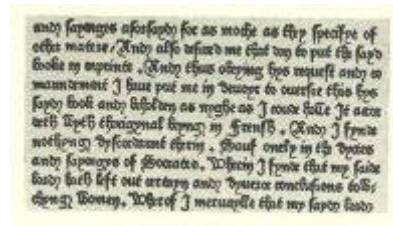 and sayenges aforsayd for as moche as they specifye of
other matere / And also desired me that don to put the sayd
booke in enprinte . And thus obeying hys request and co
maundement I haue put me in deuoyr to ouersee this hys
sayd book and beholden as nyghe as I coude howe It accor
deth wyth thorigynal beyng in Frensh . And I fynde
nothyng dyscordaunt therin . Sauf onely in the dyctes
and sayengys of Socrates . Wherin I fynde that my saide
lord hath left out certayn and dyuerce conclusions tow
chyng Women . Wherof I meruaylle that my sayd lord